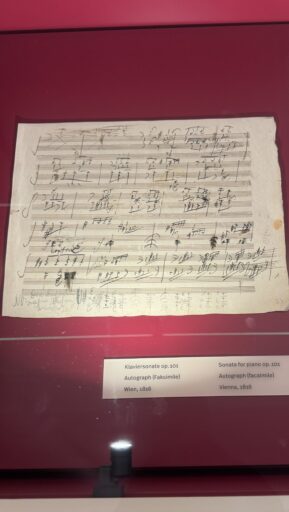 Klaviersonate op. 101
Autograph (Faksimile)
Wien, 1816
Sonate for piano op. 101
Autograph (facsimile)
Vienna, 1816